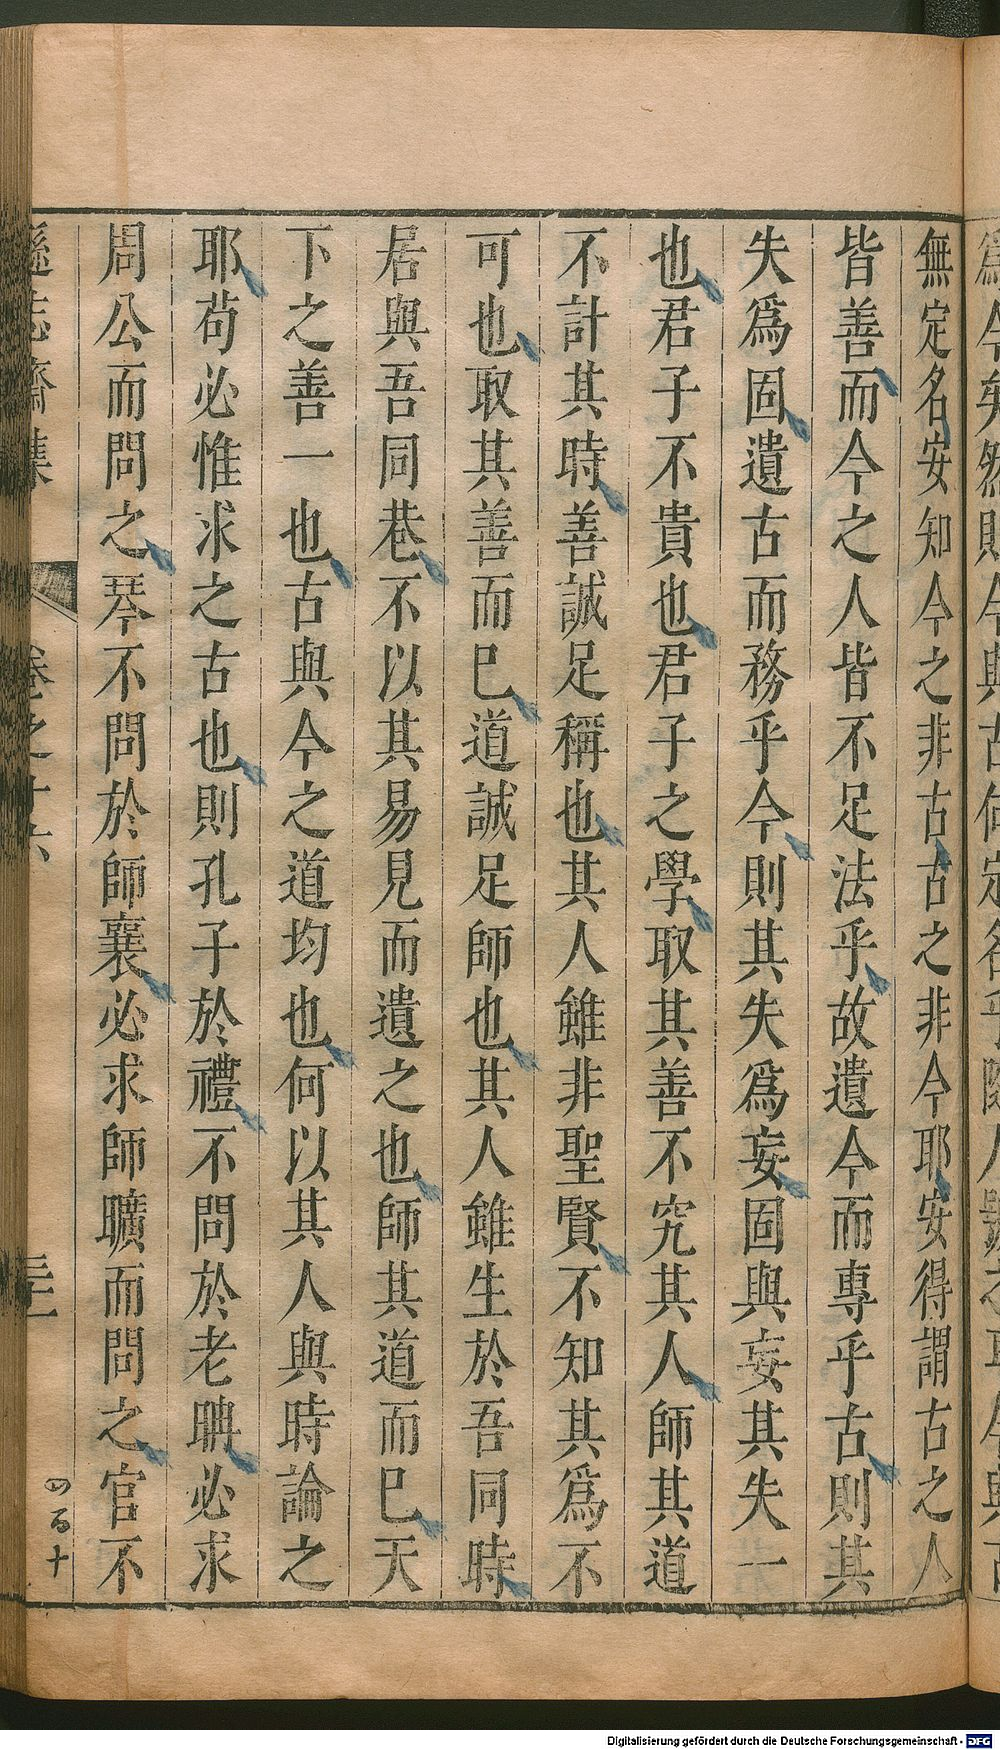 無定名安知今之非古古之非今耶安得謂古之人
皆善而今之人皆不足法乎故遺今而專乎古則其
失爲固遺古而務乎今則其失爲妄固與妄其失一
也君子不貴也君子之學取其善不究其人師其道
不計其時善誠足稱也其人雖非聖賢不知其爲不
可也取其善而巳道誠足師也其人雖生於吾同時
居與吾同巷不以其易見而遺之也師其道而巳天
下之善一也古與今之道均也何以其人與時論之
耶苟必惟求之古也則孔子於禮不問於老聃必求
周公而問之琴不問於師襄必求師曠而問之官不
遜志齋集 卷之十六
四百十
Digitalisierung gefördert durch die Deutsche Forschungsgemeinschaft - DFG